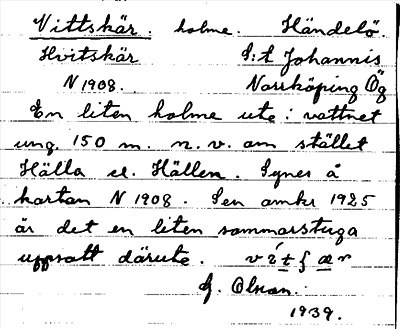 Vittskär. holme. Händelö.
Hvitskär S:t Johannis
N 1908. Norrköping Ög
En liten holme ute i vattnet
ung. 150 m. n.v. om stället
Hälla el. Hällen. Synes å
kartan N 1908. Sen omkr 1925
är det en liten sommarstuga
uppsatt därute.
G. Olson.
1939.